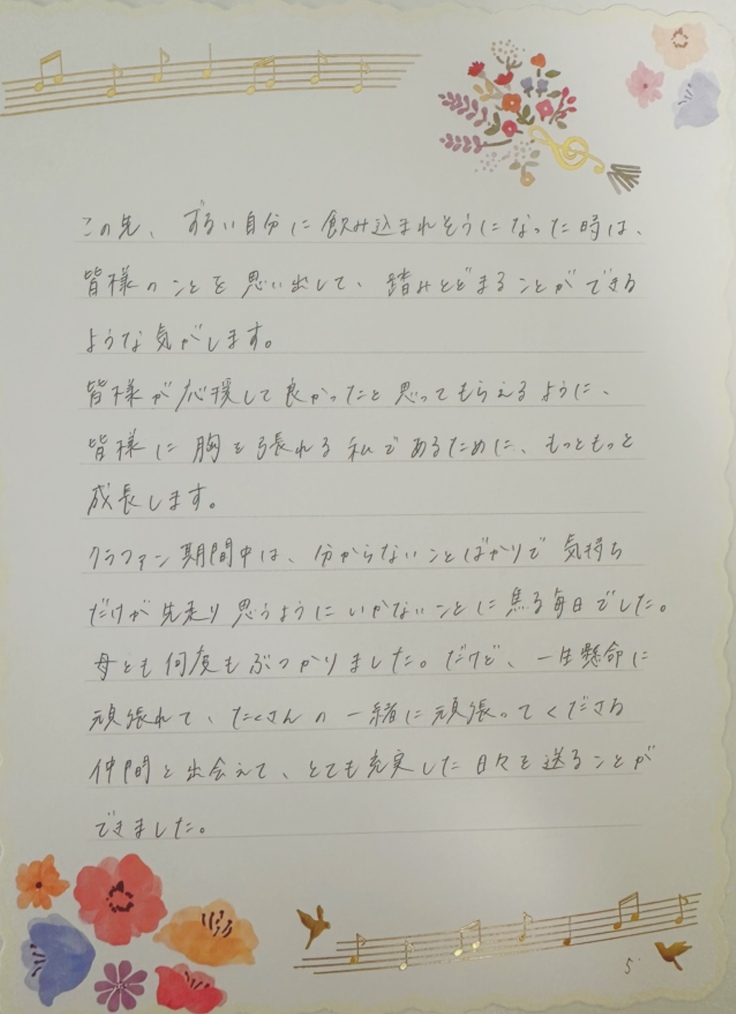 この先、ずるい自分に飲み込まれそうになった時は、
皆様のことを思い出して、踏みとどまることができる
ような気がします。
皆様が応援して良かったと思ってもらえるように、
皆様に胸を張れる私であるために、もっともっと
成長します。
クラファン期間中は、分からないことばかりで気持ち
だけが先走り思うようにいかないことに焦る毎日でした。
母とも何度もぶつかりました。だけど、一生懸命に
頑張れて、たくさんの一緒に頑張ってくださる
仲間と出会えて、とても充実した日々を送ることが
できました。
5